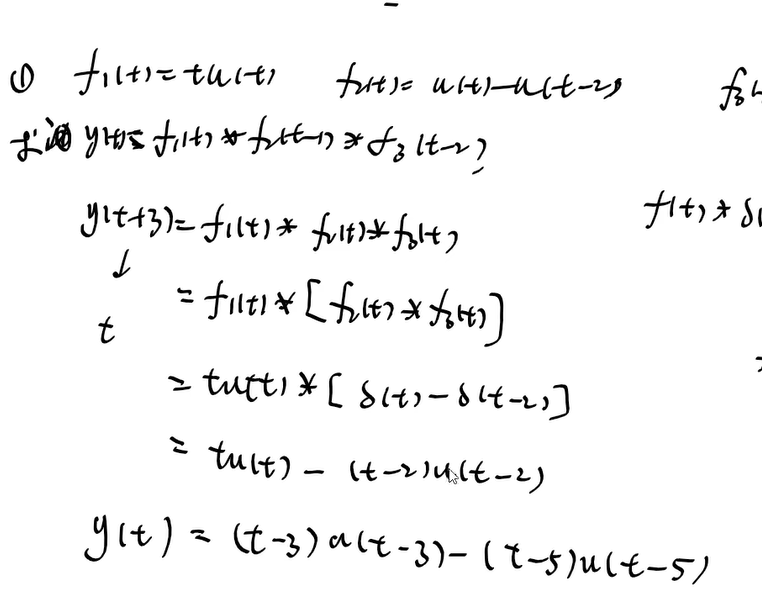 ① f₁(t)=tu(t) f₂(t)=u(t)-u(t-2) f₃(
y(t)=f₁(t)*f₂(t-1)*f₃(t-2)?
y(t+3)=f₁(t)*f₂(t)*f₃(t) f(t)*δ(
↓
=f₁(t)*[f₂(t)*f₃(t)]
t
=tu(t)*[δ(t)-δ(t-2)]
=tu(t)-(t-2)u(t-2)
y(t)=(t-3)u(t-3)-(t-5)u(t-5)